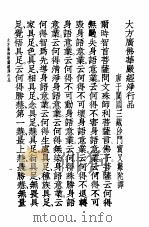 大方廣佛華嚴經淨行品
唐于闐國三藏沙門實叉難陀譯
爾時智首菩薩問文殊師利菩薩言佛子菩薩云何得
無過失身語意業云何得不害身語意業云何得不可
毀身語意業云何得不可壞身語意業云何得不退轉
身語意業云何得不可動身語意業云何得殊勝身語
意業云何得清淨身語意業云何得無染身語意業云
何得智為先導身語意業云何得生處具足種族具足
家具足色具足相具足念具足慧具足行具足無畏具
足覺悟具足云何得勝慧第一慧最上慧最勝慧無量